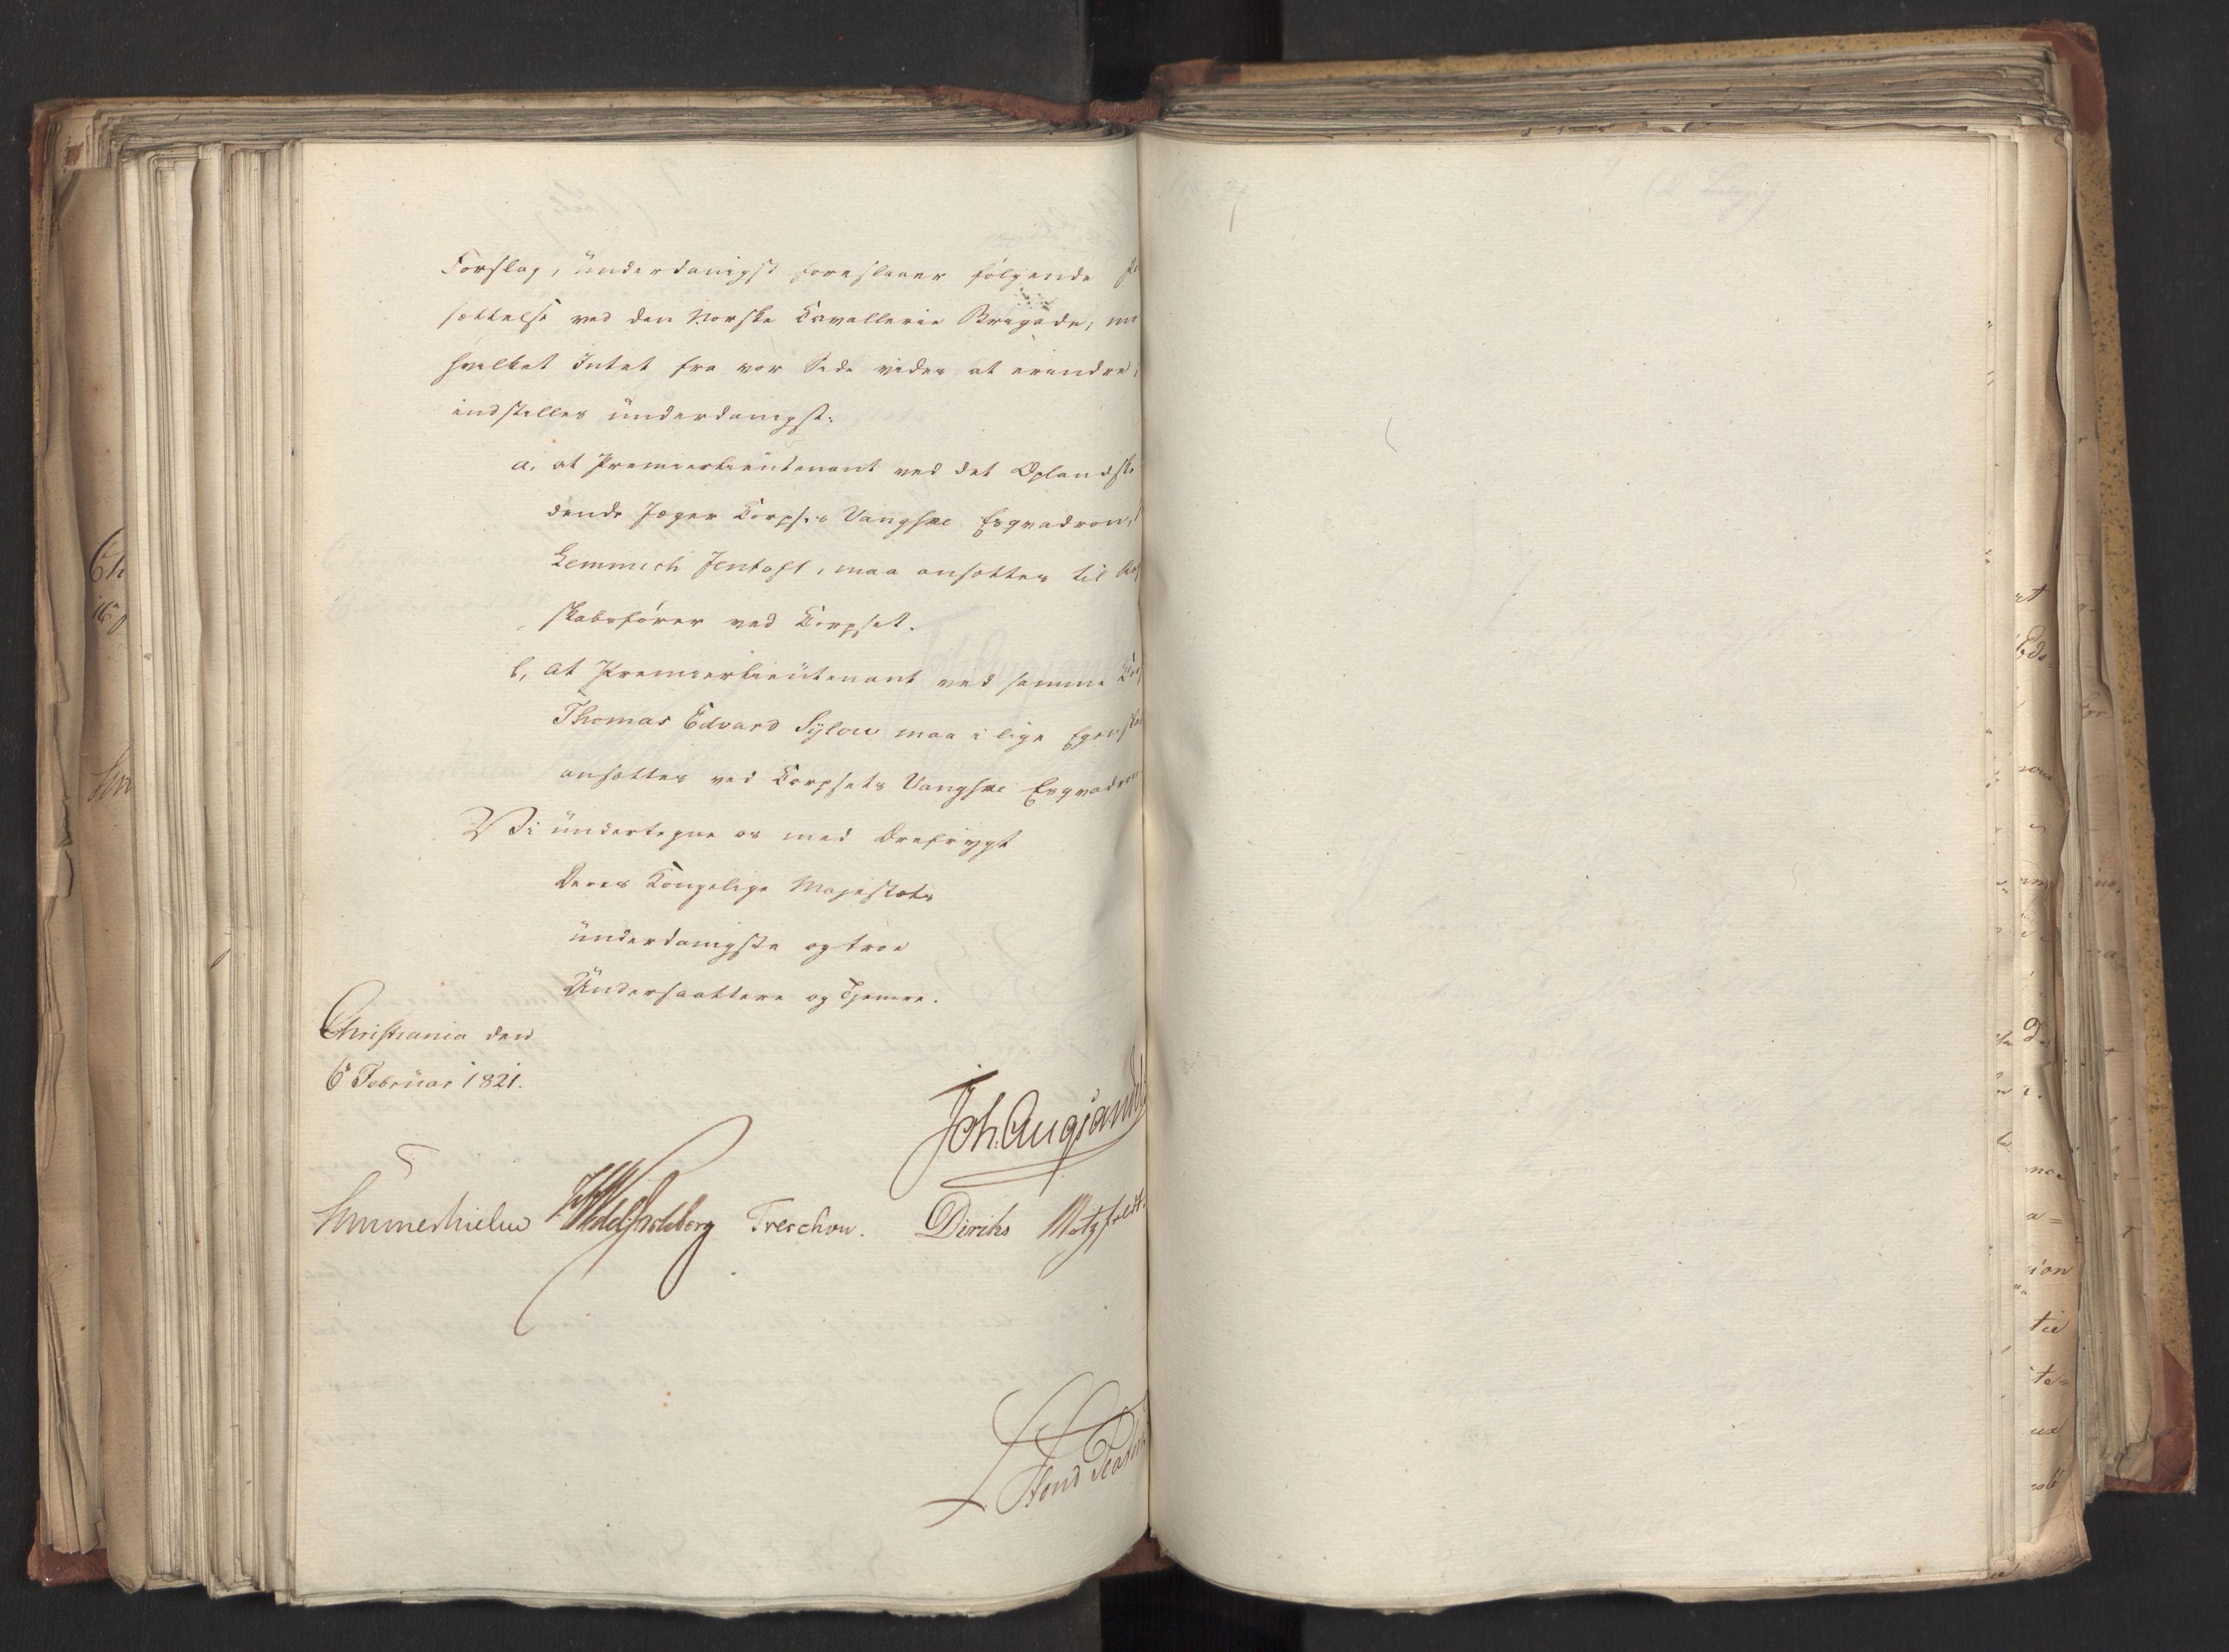 Forslag, ünderdanigst foreslaaer følgende
sættelse ved den Norske Cavallerie Brigade;
hvilket Intet fra vor Side vides at erindre;
indstilles ünderdanigst:
a, at Premierlieütenant ved det Oplandske
dende Jæger Corpses Vangske Esqvadron,
Lemmich Jentoft, maa ansættes til
skabsfører ved Corpset.
b, at Premierlieütenant ved samme
Thomas Edvard Sÿlow maa i lige Egenska
ansættes ved Corpsets Vangske Esqvadron
Vi ündertegne os med Ærefrygt
Deres Kongelige Majestæts
ünderdanigste og troe
Ündersaattere og Tjenere.
Christiania den
6 Februar 1821.
Joh. Aug: Sandels
Sommerhielm Treschow. Diriks Motzfeldt.